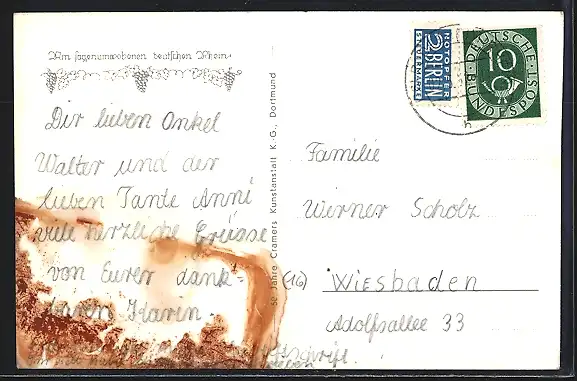 Am sagenumwobenen deutschen Rhein
Dir lieben Onkel
Walter und der
lieben Tante Anni
viele herzliche Grüsse
von Eurer dank-
baren Karin.
50 Jahre Cramers Kunstanstalt K.-G., Dortmund
NOTOPFER
2 BERLIN
STEUERMARKE
DEUTSCHE
10
BUNDESPOST
Familie
Werner Scholz
(16) Wiesbaden
Adolfsallee 33